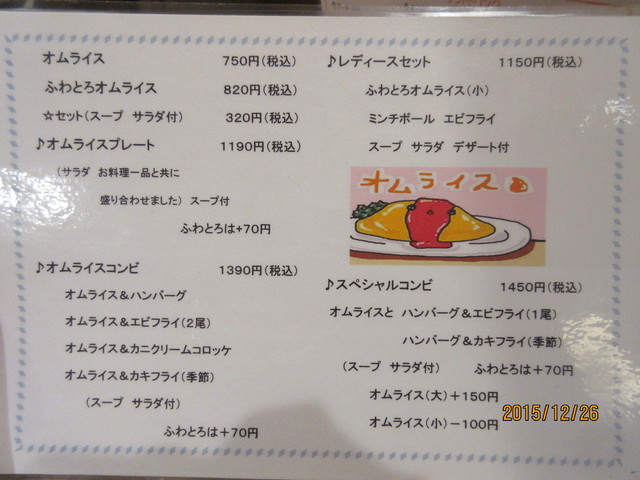 オムライス 750円(税込)
ふわとろオムライス 820円(税込)
☆セット(スープ サラダ付) 320円(税込)
♪オムライスプレート 1190円(税込)
(サラダ お料理一品と共に
盛り合わせました) スープ付
ふわとろは+70円
♪オムライスコンビ 1390円(税込)
オムライス&ハンバーグ
オムライス&エビフライ(2尾)
オムライス&カニクリームコロッケ
オムライス&カキフライ(季節)
(スープ サラダ付)
ふわとろは+70円
♪レディースセット 1150円(税込)
ふわとろオムライス(小)
ミンチボール エビフライ
スープ サラダ デザート付
オムライス
♪スペシャルコンビ 1450円(税込)
オムライスと ハンバーグ&エビフライ(1尾)
ハンバーグ&カキフライ(季節)
(スープ サラダ付) ふわとろは+70円
オムライス(大)+150円
オムライス(小)-100円
2015/12/26